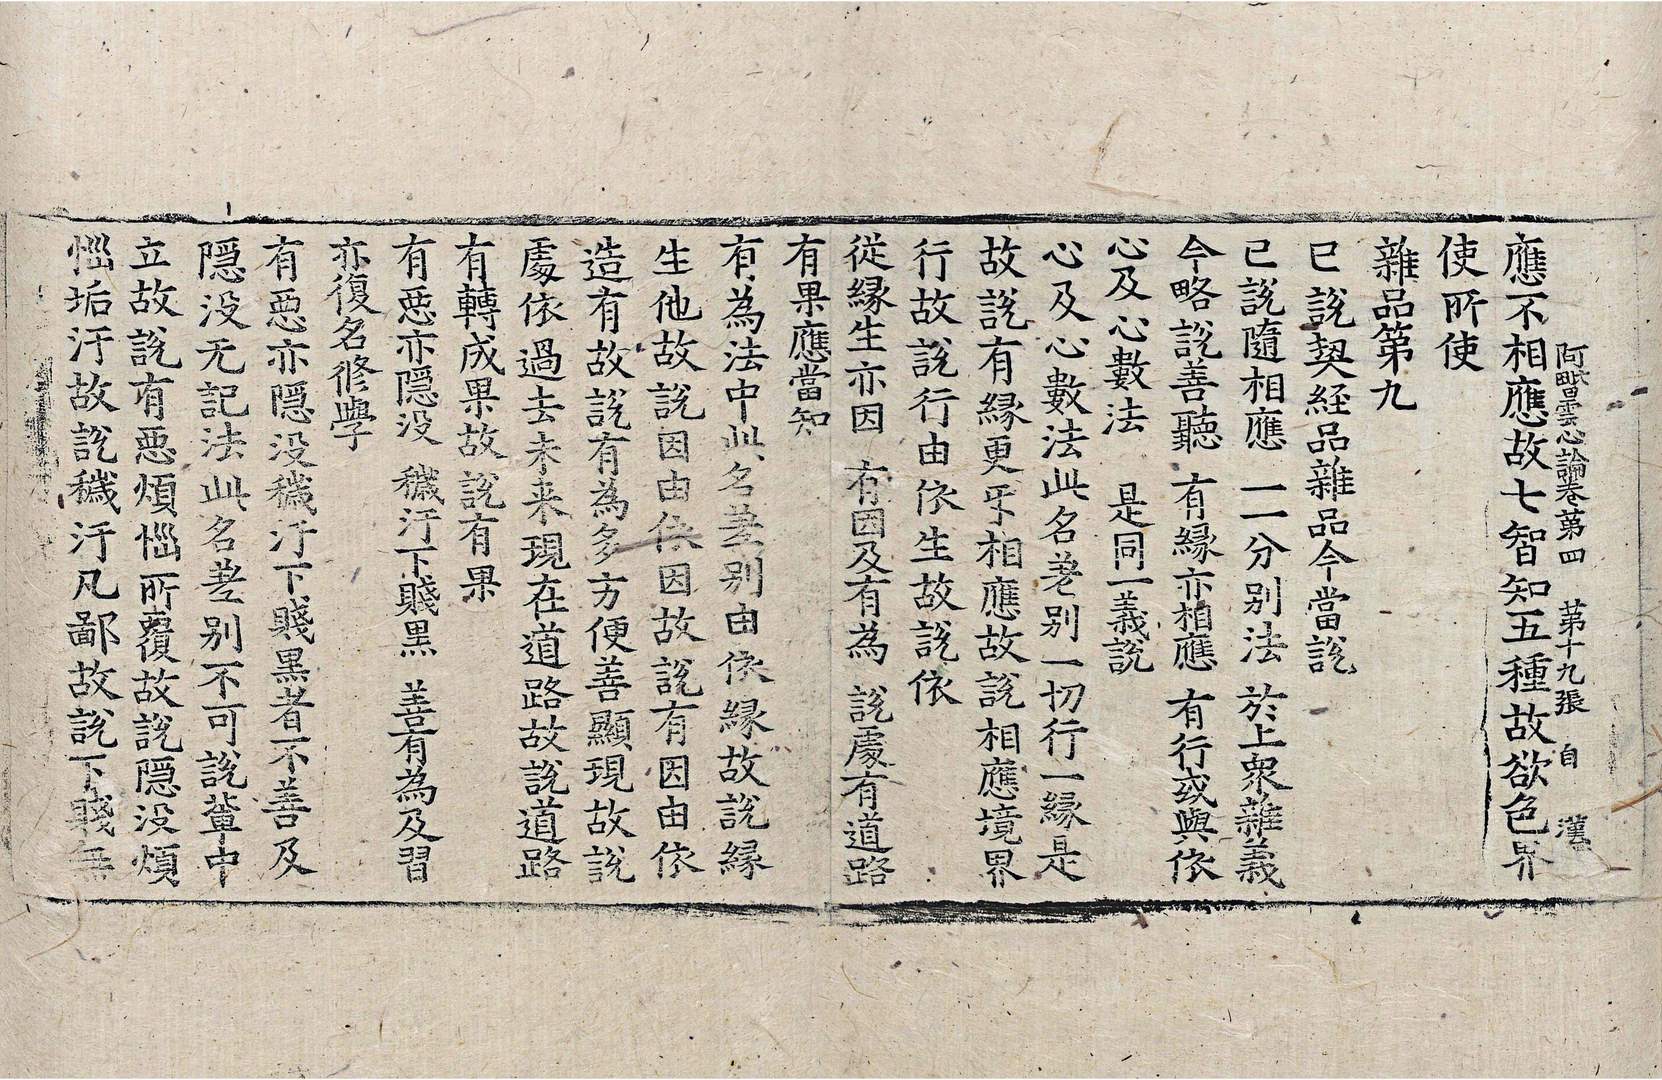 阿毗曇心論卷第四　第十九張　自　漢
應不相應故七智知五種故欲色界
使所使
雜品第九
已說契経品雜品今當說
已說隨相應　一一分別法　於上衆雜義
今略說善聽　有縁亦相應　有行或與依
心及心數法　是同一義說
心及心數法此名差別一切行一縁是
故說有縁更㸦相應故說相應境界
行故說行由依生故說依
從縁生亦因　有因及有為　說處有道路
有果應當知
有為法中此名差別由依縁故說縁
生他故說因由依因故說有因由依
造有故說有為多方便善顯現故說
處依過去未来現在道路故說道路
有轉成果故說有果
有惡亦隠没　穢汙下賤黒　善有為及習
亦復名修學
有惡亦隠没穢汙下賤黒者不善及
隠没无記法此名差別不可說輩中
立故說有惡煩惱所覆故說隠没煩
惱垢汙故說穢汙凡鄙故說下賤無